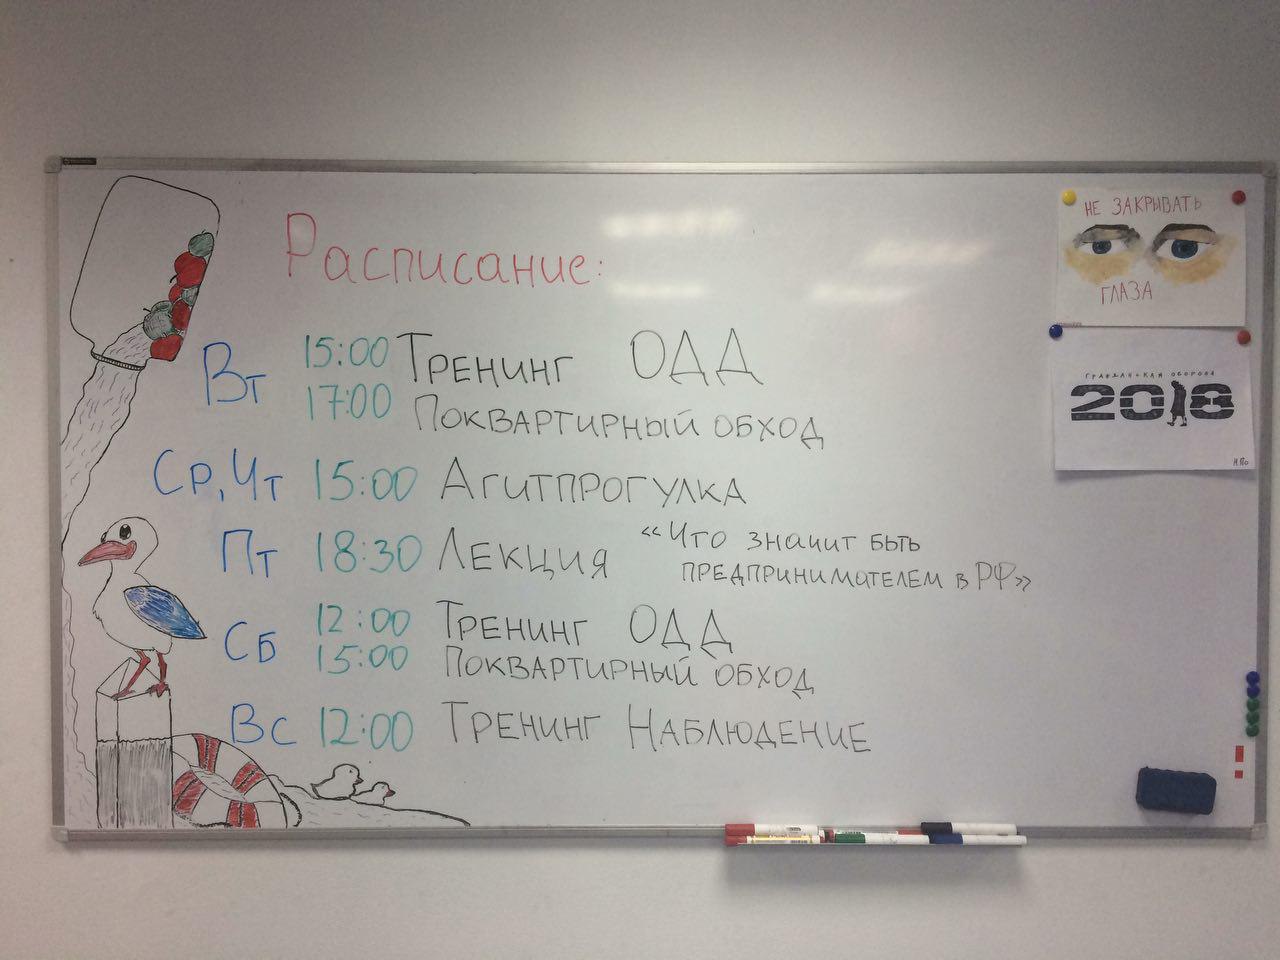 Расписание:
Вт 15:00 Тренинг ОДД
17:00 Поквартирный обход
Ср, Чт 15:00 Агитпрогулка
Пт 18:30 Лекция «Что значит быть
предпринимателем в РФ»
Сб 12:00 Тренинг ОДД
15:00 Поквартирный обход
Вс 12:00 Тренинг Наблюдение
НЕ ЗАКРЫВАТЬ
ГЛАЗА
ГРАЖДАНСКАЯ ОБОРОНА
2018